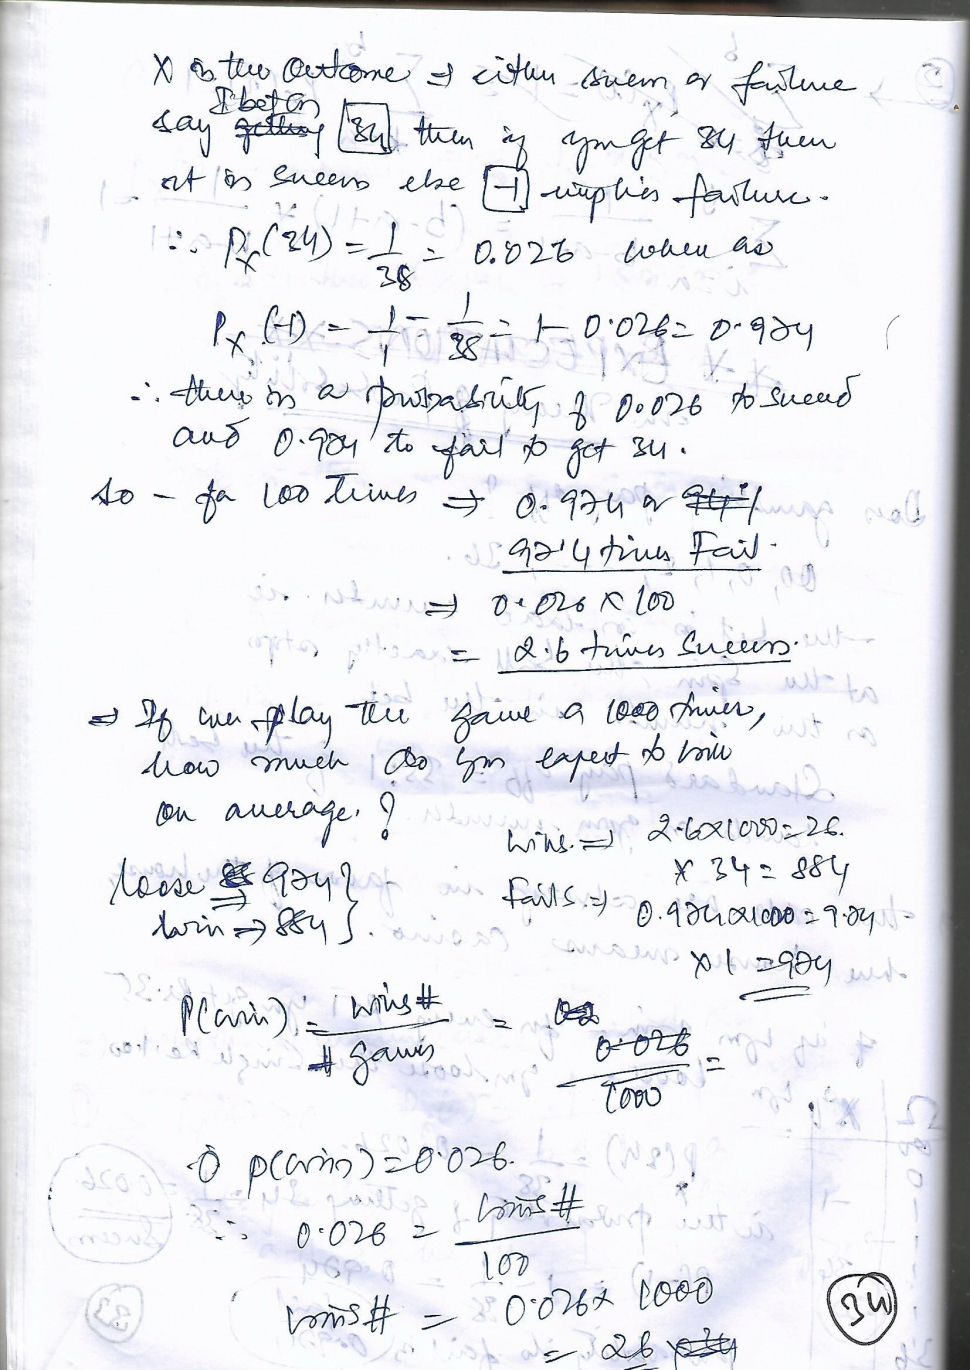 X is the Outcome ⇒ either success or failure
I bet on
say getting 34 then if you get 34 then
it is success else -1 implies failure.
∴ Px(34) = 1/38 = 0.026 when as
Px(-1) = 1/1 - 1/38 = 1 - 0.026 = 0.974
∴ there is a probability of 0.026 to succeed
and 0.974 to fail to get 34.
So - for 100 Times ⇒ 0.974 or 97.4%
97.4 times Fail.
⇒ 0.026 × 100
= 2.6 times Success.
⇒ If we play the game a 1000 times,
how much do you expect to win
on average.?
Wins. ⇒ 2.6×1000 = 26.
× 34 = 884
loose ⇒ 974
Fails. ⇒ 0.974×1000 = 974
win ⇒ 884
× 1 = 974
P(win) = wins# / # games = 0.026 / 1000 =
p(win) = 0.026.
∴ 0.026 = wins# / 100
wins# = 0.026 × 1000
= 26 × 34
34